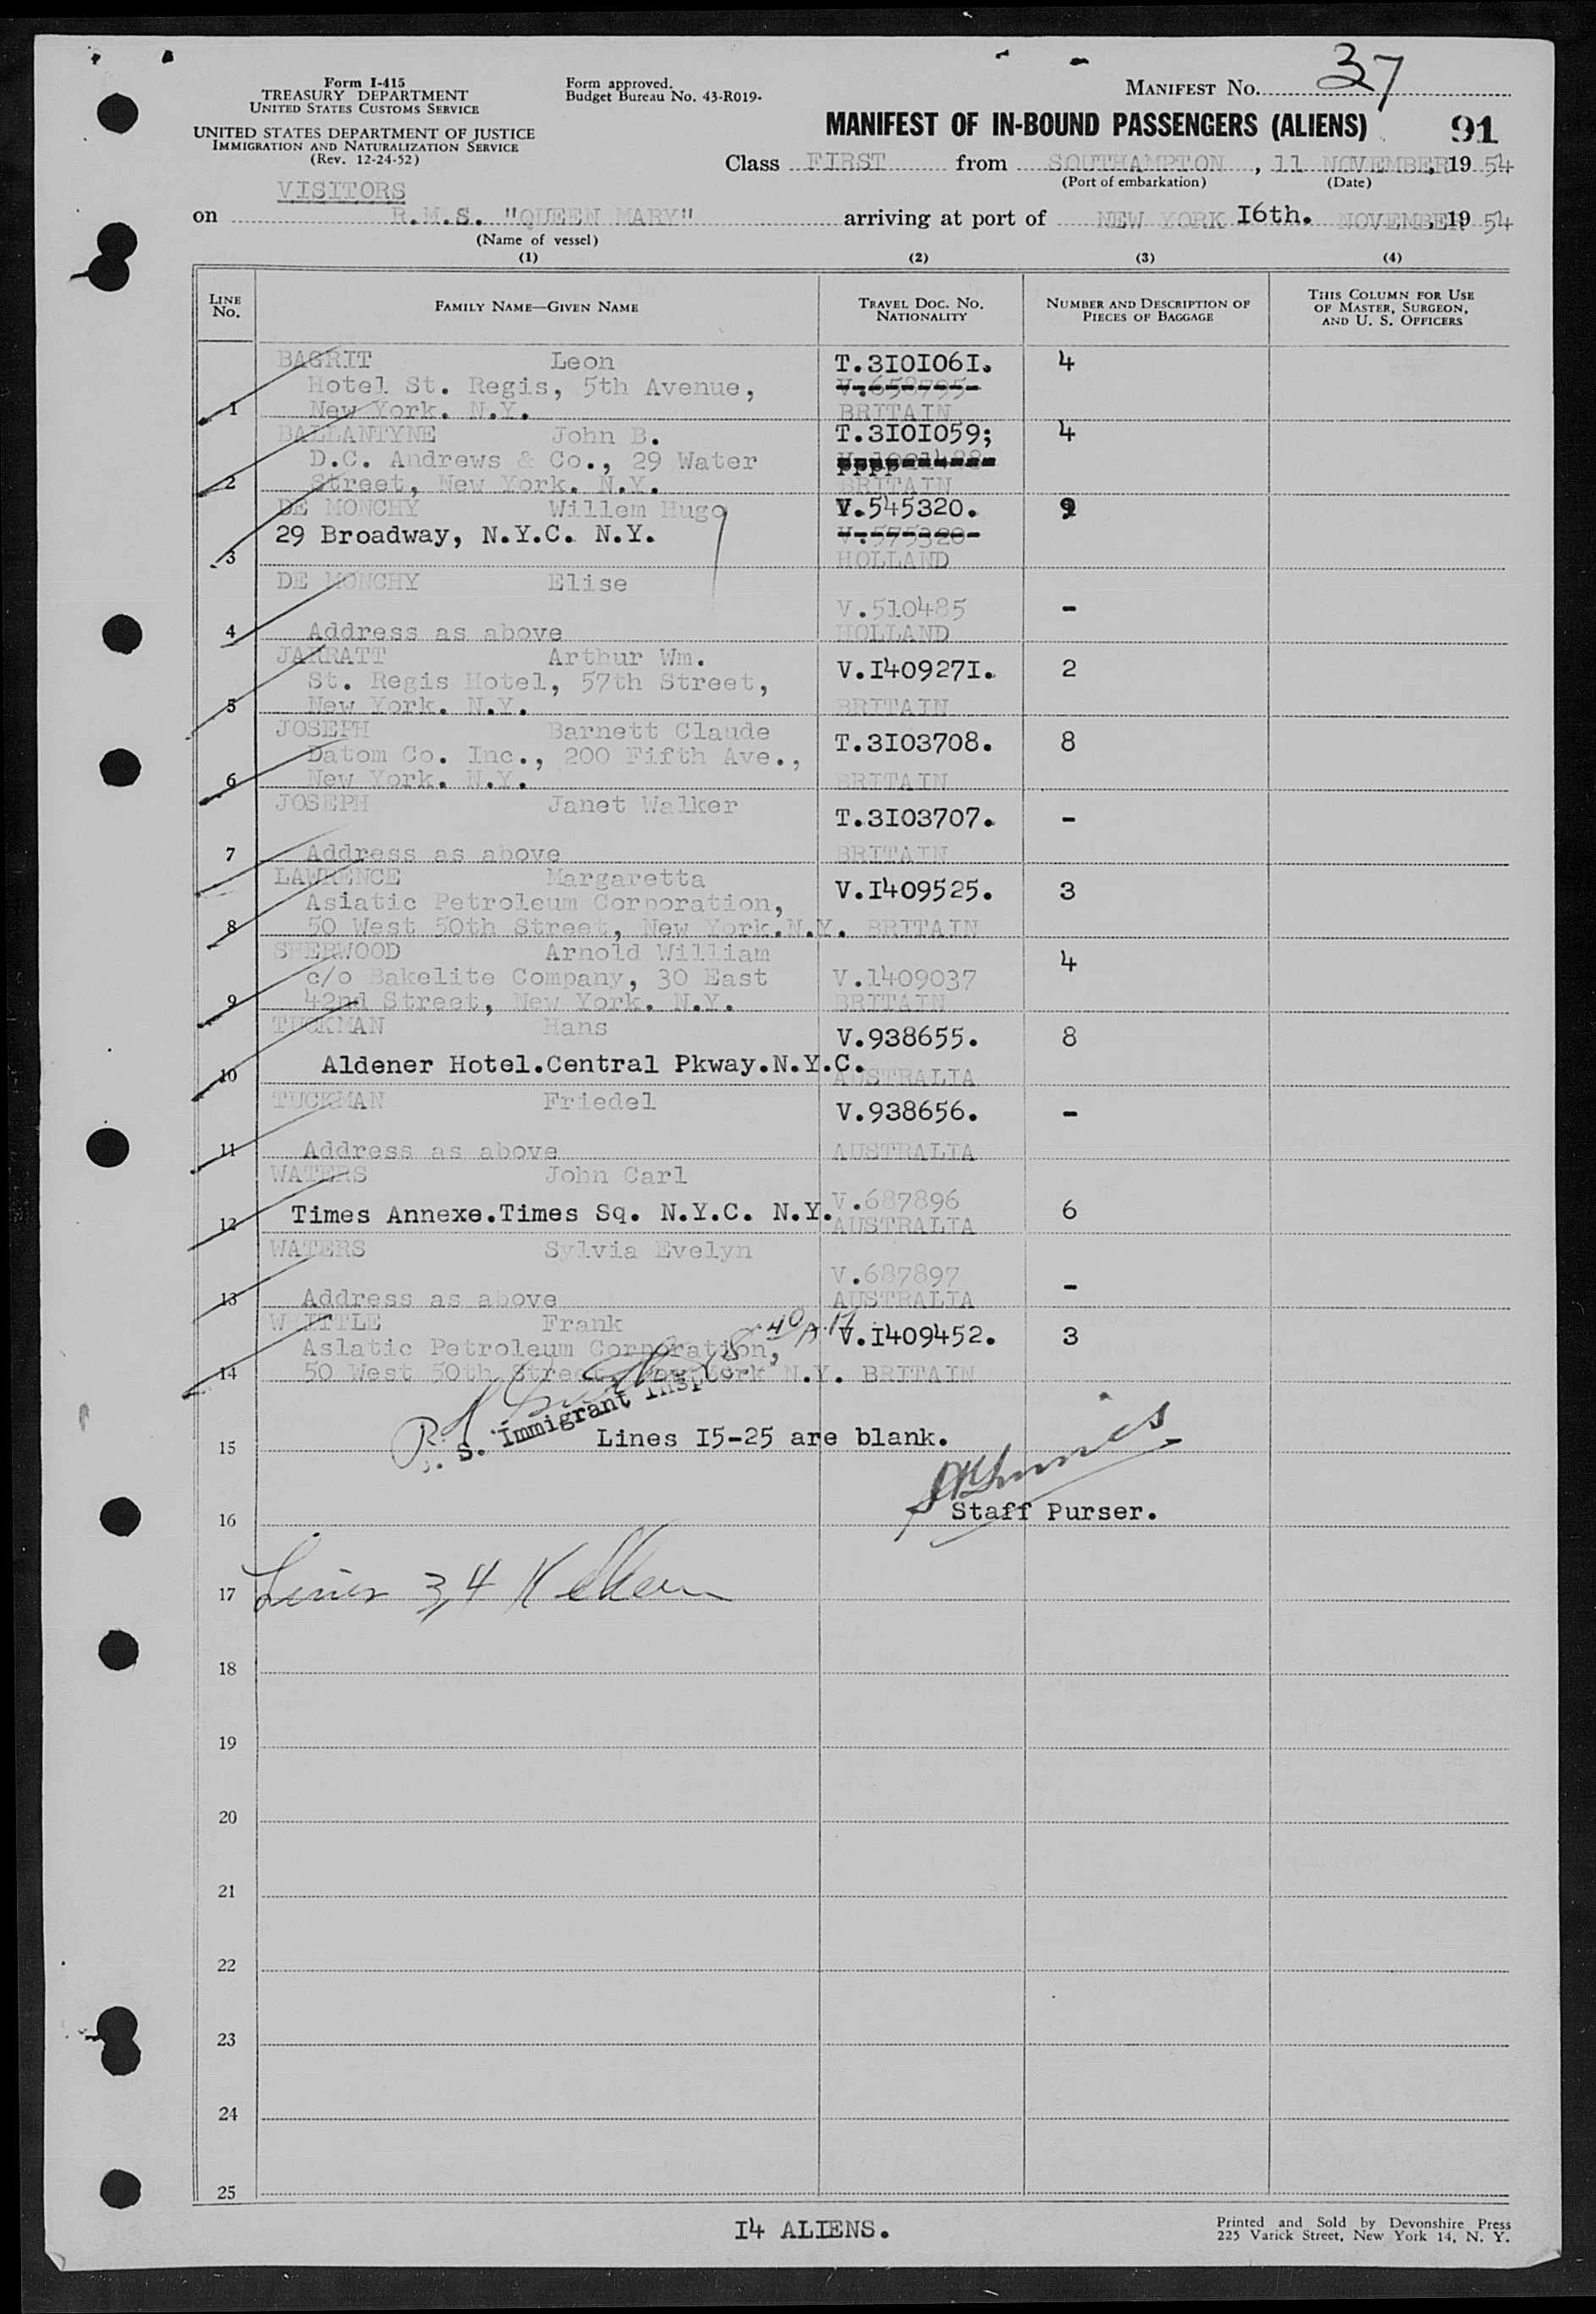 Form I-415
TREASURY DEPARTMENT
UNITED STATES CUSTOMS SERVICE
UNITED STATES DEPARTMENT OF JUSTICE
IMMIGRATION AND NATURALIZATION SERVICE
(Rev. 12-24-52)
Form approved.
Budget Bureau No. 43-R019-
MANIFEST No. 37
MANIFEST OF IN-BOUND PASSENGERS (ALIENS) 91
Class FIRST from SOUTHAMPTON, 11 NOVEMBER, 19 54
(Port of embarkation) (Date)
VISITORS
on R.M.S. "QUEEN MARY" arriving at port of NEW YORK I6th. NOVEMBER, 19 54
(Name of vessel)
(1) (2) (3) (4)
LINE No. FAMILY NAME—GIVEN NAME TRAVEL DOC. NO. NATIONALITY NUMBER AND DESCRIPTION OF PIECES OF BAGGAGE THIS COLUMN FOR USE OF MASTER, SURGEON, AND U. S. OFFICERS
BAGRIT Leon T.3I0I06I. 4
Hotel St. Regis, 5th Avenue, V.658795
1 New York. N.Y. BRITAIN
BALLANTYNE John B. T.3I0I059; 4
D.C. Andrews & Co., 29 Water
2 Street, New York. N.Y. BRITAIN
DE MONCHY Willem Hugo V.545320. 9
29 Broadway, N.Y.C. N.Y. V.575320
3 HOLLAND
DE MONCHY Elise
V.510485 -
4 Address as above HOLLAND
JARRATT Arthur Wm. V.I40927I. 2
St. Regis Hotel, 57th Street,
5 New York. N.Y. BRITAIN
JOSEPH Barnett Claude T.3I03708. 8
Datom Co. Inc., 200 Fifth Ave.,
6 New York. N.Y. BRITAIN
JOSEPH Janet Walker T.3I03707. -
7 Address as above BRITAIN
LAWRENCE Margaretta V.I409525. 3
Asiatic Petroleum Corporation,
8 50 West 50th Street, New York.N.Y. BRITAIN
SHERWOOD Arnold William 4
c/o Bakelite Company, 30 East V.1409037
9 42nd Street, New York. N.Y. BRITAIN
TUCKMAN Hans V.938655. 8
10 Aldener Hotel.Central Pkway.N.Y.C. AUSTRALIA
TUCKMAN Friedel V.938656. -
11 Address as above AUSTRALIA
WATERS John Carl
V.687896 6
12 Times Annexe.Times Sq. N.Y.C. N.Y. AUSTRALIA
WATERS Sylvia Evelyn
V.687897 -
13 Address as above AUSTRALIA
WHITTLE Frank V.I409452. 3
Asiatic Petroleum Corporation,
14 50 West 50th Street, New York N.Y. BRITAIN
S. Immigrant Insp
15 Lines I5-25 are blank.
16 Staff Purser.
17 Lines 3,4
18
19
20
21
22
23
24
25
I4 ALIENS.
Printed and Sold by Devonshire Press
225 Varick Street, New York 14, N. Y.